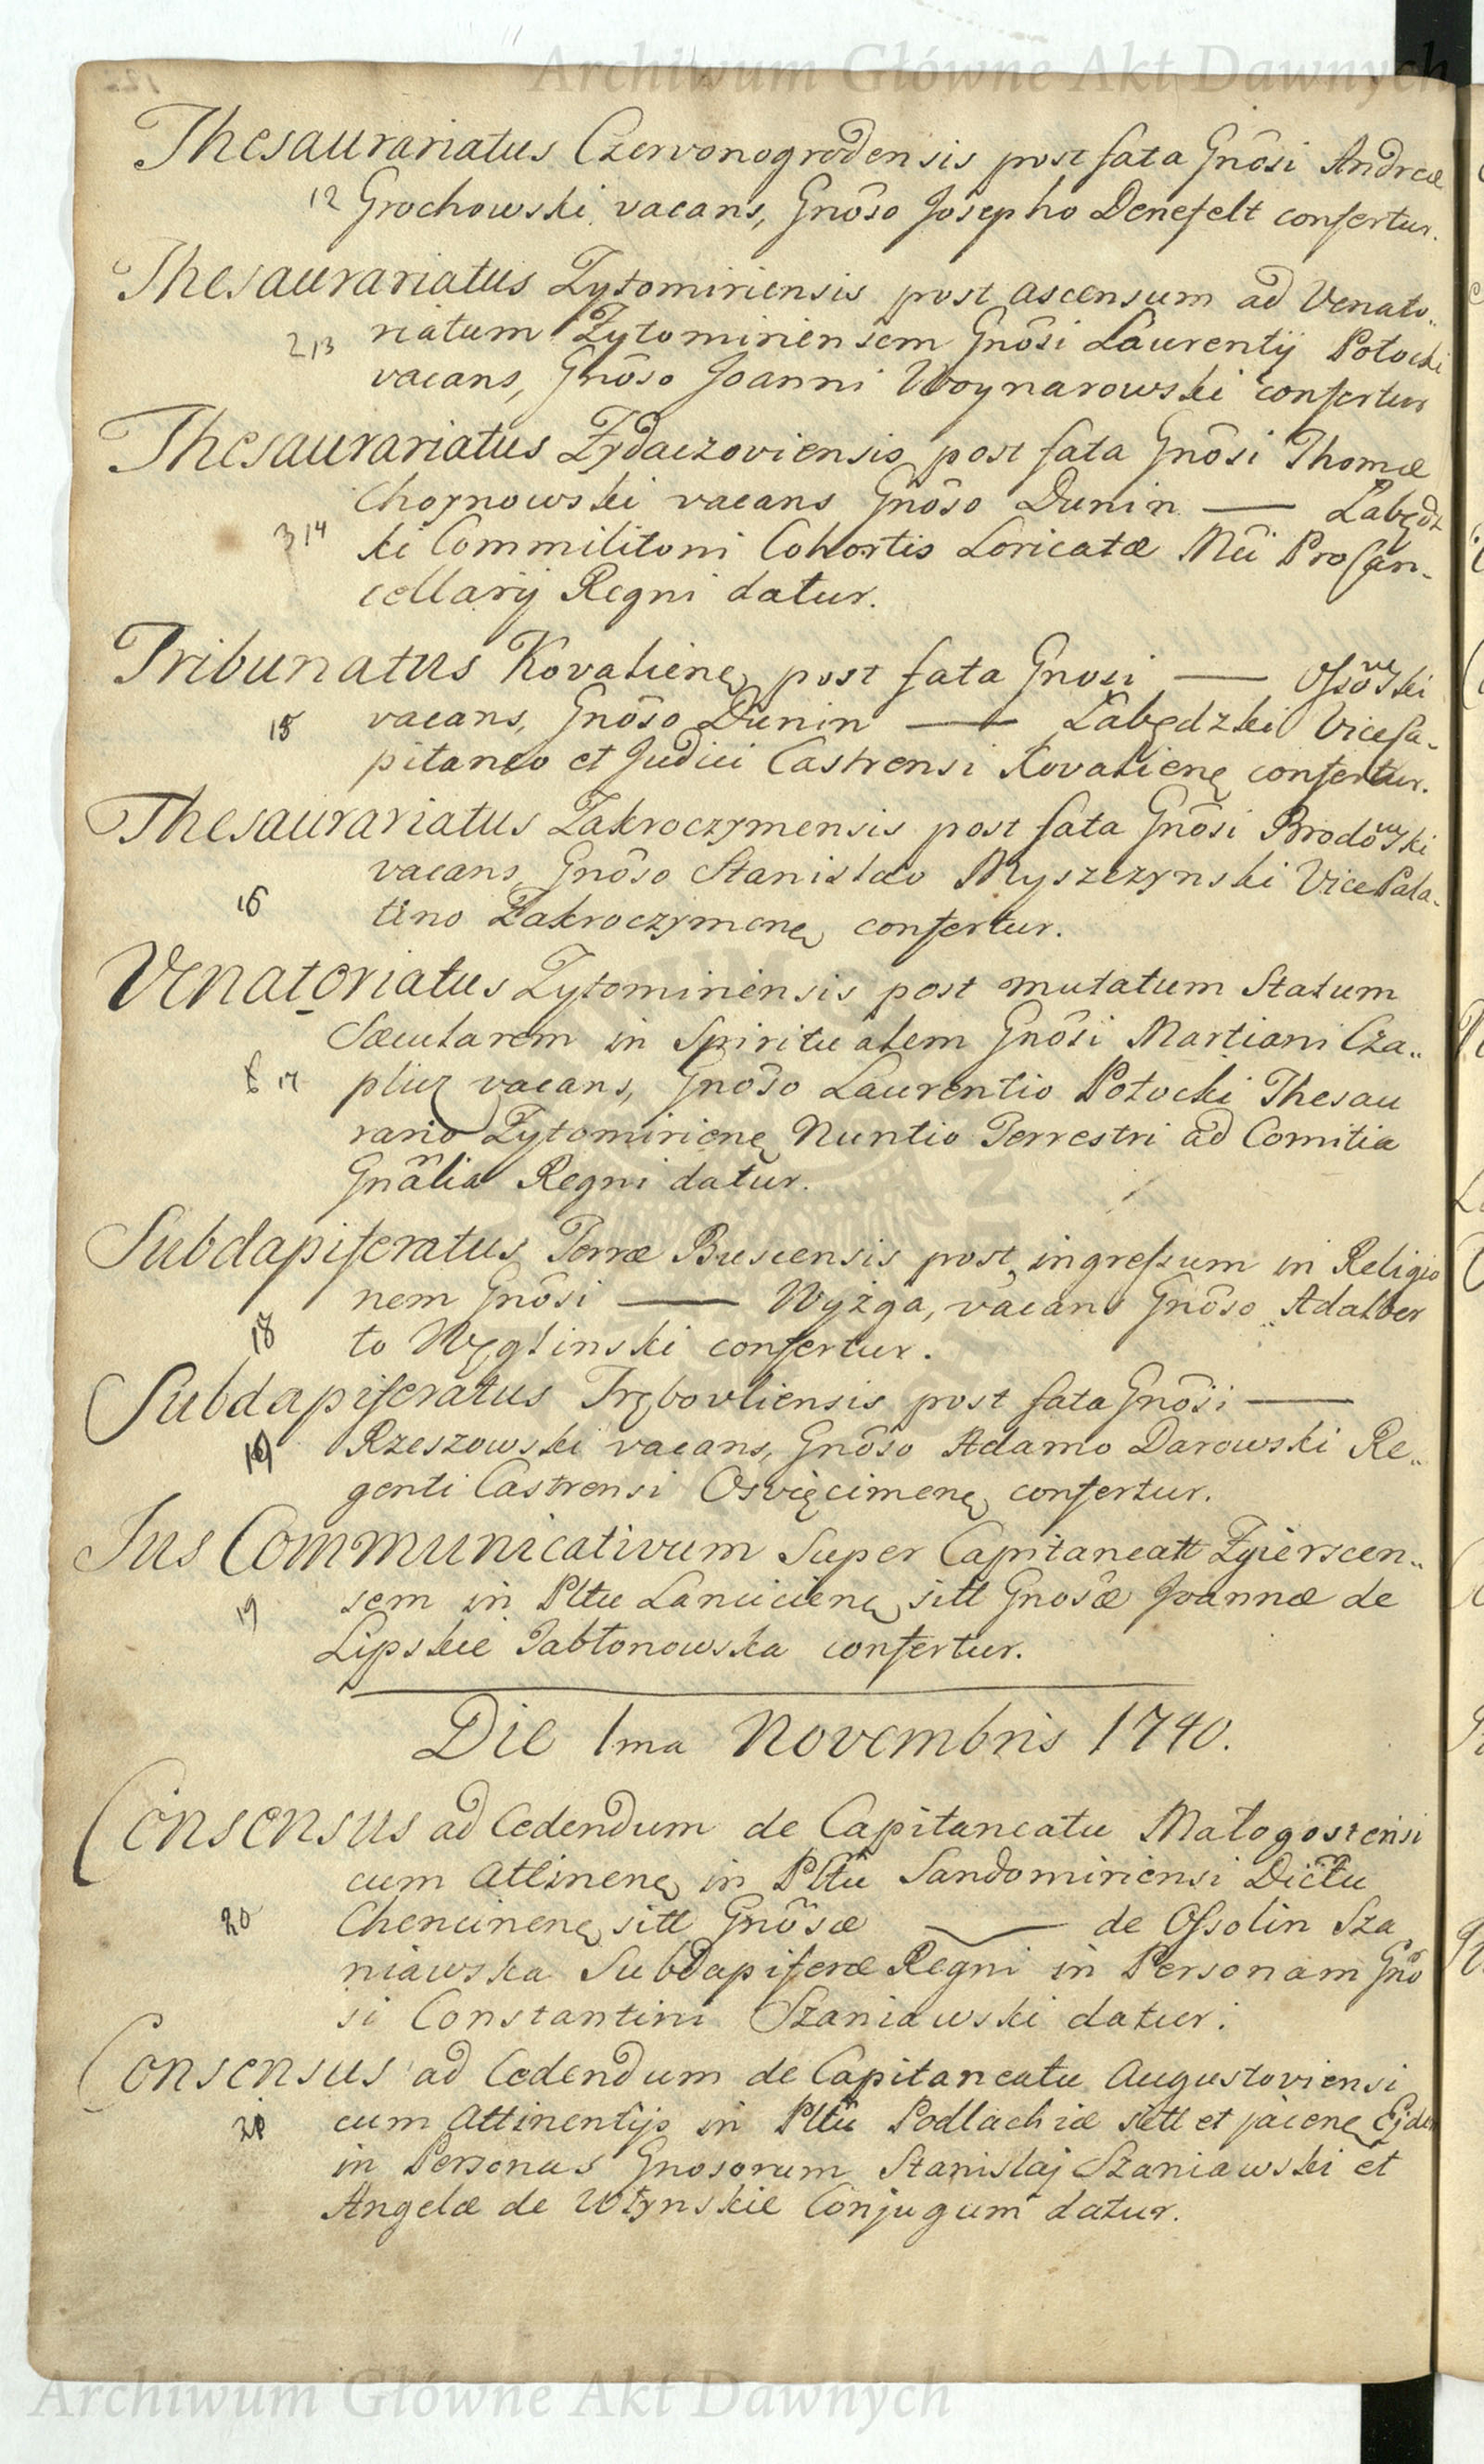 Archiwum Główne Akt Dawnych
Thesaurariatus Czervonogrodensis post fata Gnôsi Andreæ
12 Grochowski vacans, Gnôso Josepho Denefelt confertur.
Thesaurariatus Zytomiriensis post ascensum ad Venato„
213 riatum Zytomiriensem Gnôsi Laurentij Potocki
vacans, Gnôso Joanni Woynarowski confertur
Thesaurariatus Zydaczoviensis post fata Gnôsi Thomæ
Choynowski vacans Gnôso Dunin — Łabędz
314 ki Commilitoni Cohortis Loricatæ Mci ProCan-
cellarij Regni datur.
Tribunatus Kovaliens post fata Gnosi — Ossowski
15 vacans, Gnôso Dunin — Łabędzki ViceCa-
pitaneo et Judici Castrensi Kovaliens confertur.
Thesaurariatus Zakroczymensis post fata Gnôsi Brodowski
vacans, Gnôso Stanislao Myszczynski VicePala-
16 tino Zakroczymens confertur.
Venatoriatus Zytomiriensis post mutatum Statum
Sæcularem in Spiritualem Gnôsi Martiani Cza„
17 plicz vacans, Gnôso Laurentio Potocki Thesau
rario Zytomiriens Nuntio Terrestri ad Comitia
Gnâlia Regni datur.
Subdapiferatus Terræ Buscensis post ingressum in Religio
nem Gnôsi — Wyżga, vacans Gnôso Adalber
18 to Węglinski confertur.
Subdapiferatus Trębovliensis post fata Gnôsi —
19 Rzeszowski vacans, Gnôso Adamo Darowski Re„
genti Castrensi Osvięcimens confertur.
Jus Communicativum Super Capitaneatt Zgierscen„
19 sem in Pltu Lanciciens sitt Gnosæ Joannæ de
Lipskie Jabłonowska confertur.
Die 1ma Novembris 1740.
Consensus ad Cedendum de Capitaneatu Małogostensi
cum Attinens in Pltu Sandomiriensi Dictu
20 Chencinens sitt Gnôsæ — de Ossolin Sza
niawska Subdapiferæ Regni in Personam Gno
si Constantini Szaniawski datur.
Consensus ad Cedendum de Capitaneatu Augustoviensi
21 cum Attinentijs in Pltu Podlachiæ sitt et jacens Ejdem
in Personas Gnosorum Stanislaj Szaniawski et
Angelæ de Wtynskie Conjugum datur.
Archiwum Główne Akt Dawnych